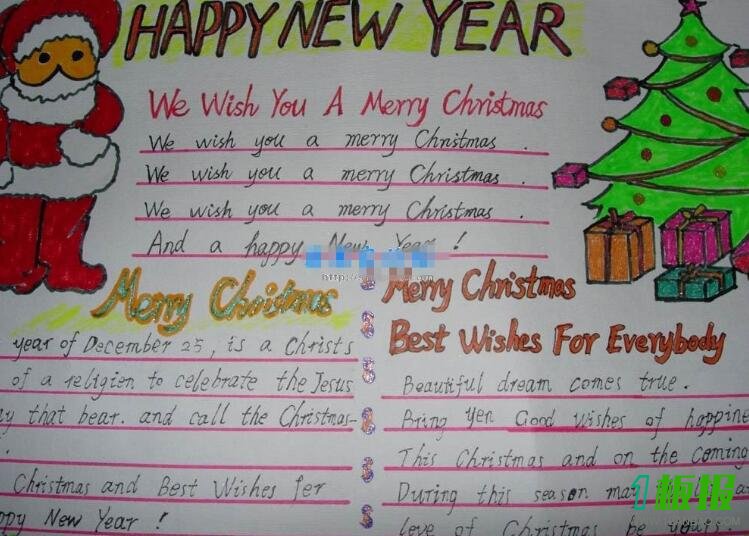 HAPPY NEW YEAR
We Wish You A Merry Christmas
We wish you a merry Christmas .
We wish you a merry Christmas .
We wish you a merry Christmas .
And a happy New Year !
Merry Christmas
year of December 25, is a Christs
of a religien to celebrate the Jesus
y that bear. and call the Christmas-
.
Christmas and Best Wishes fer
ppy New Year !
Merry Christmas
Best Wishes For Everybody
Beautiful dream comes true.
Bring yen Good wishes of happine
This Christmas and on the coming
During this season may
leve of Christmas be yours.
1板报